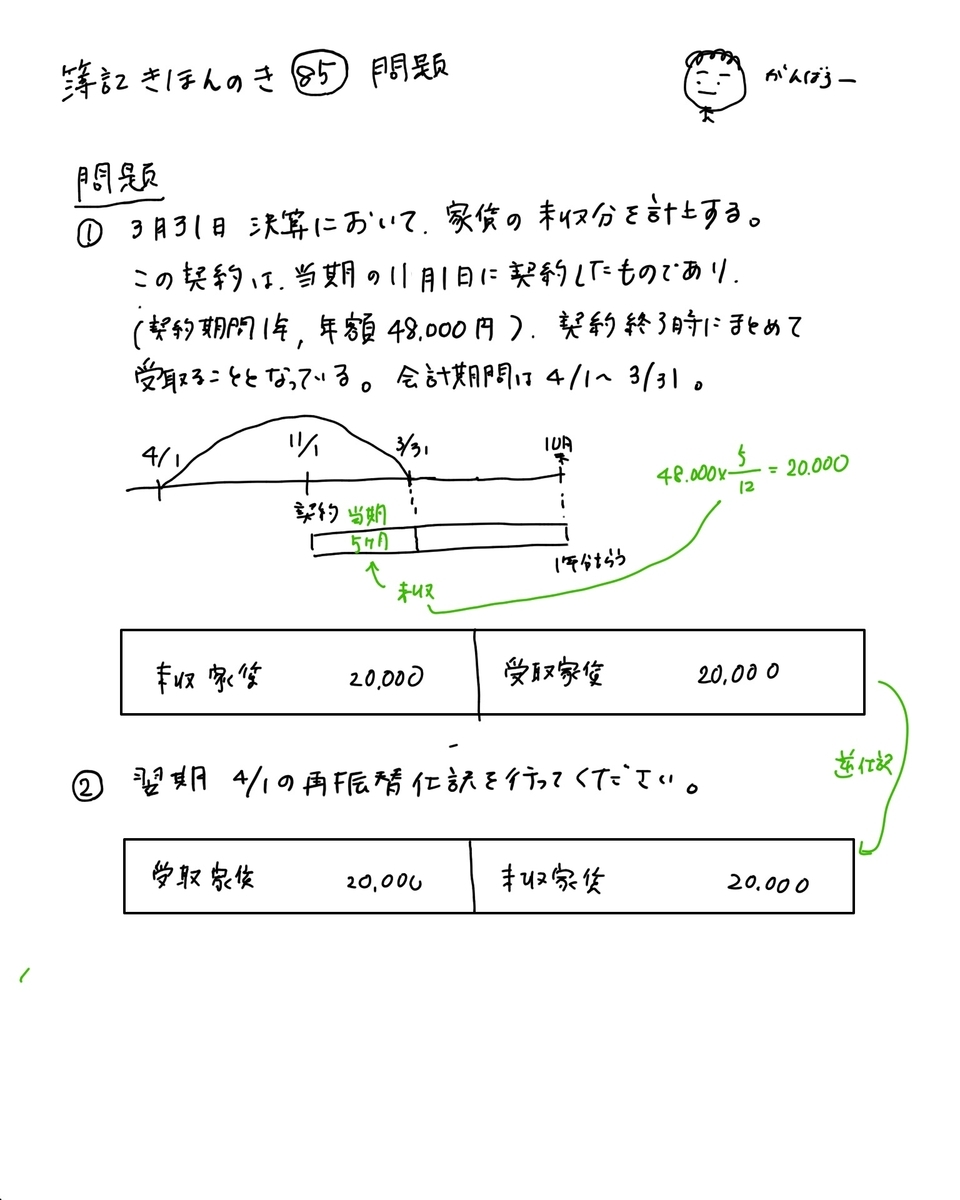 簿記きほんのき 85 問題
がんばろー
問題
① 3月31日 決算において、家賃の未収分を計上する。
この契約は、当期の11月1日に契約したものであり、
(契約期間1年, 年額48,000円)、契約終了時にまとめて
受取ることとなっている。会計期間は4/1〜3/31。
4/1 11/1 3/31 10月末
48.000×5/12=20.000
契約 当期
5ヶ月
1年分もらう
未収
未収家賃 20,000 受取家賃 20,000
逆仕訳
② 翌期 4/1の再振替仕訳を行ってください。
受取家賃 20,000 未収家賃 20.000